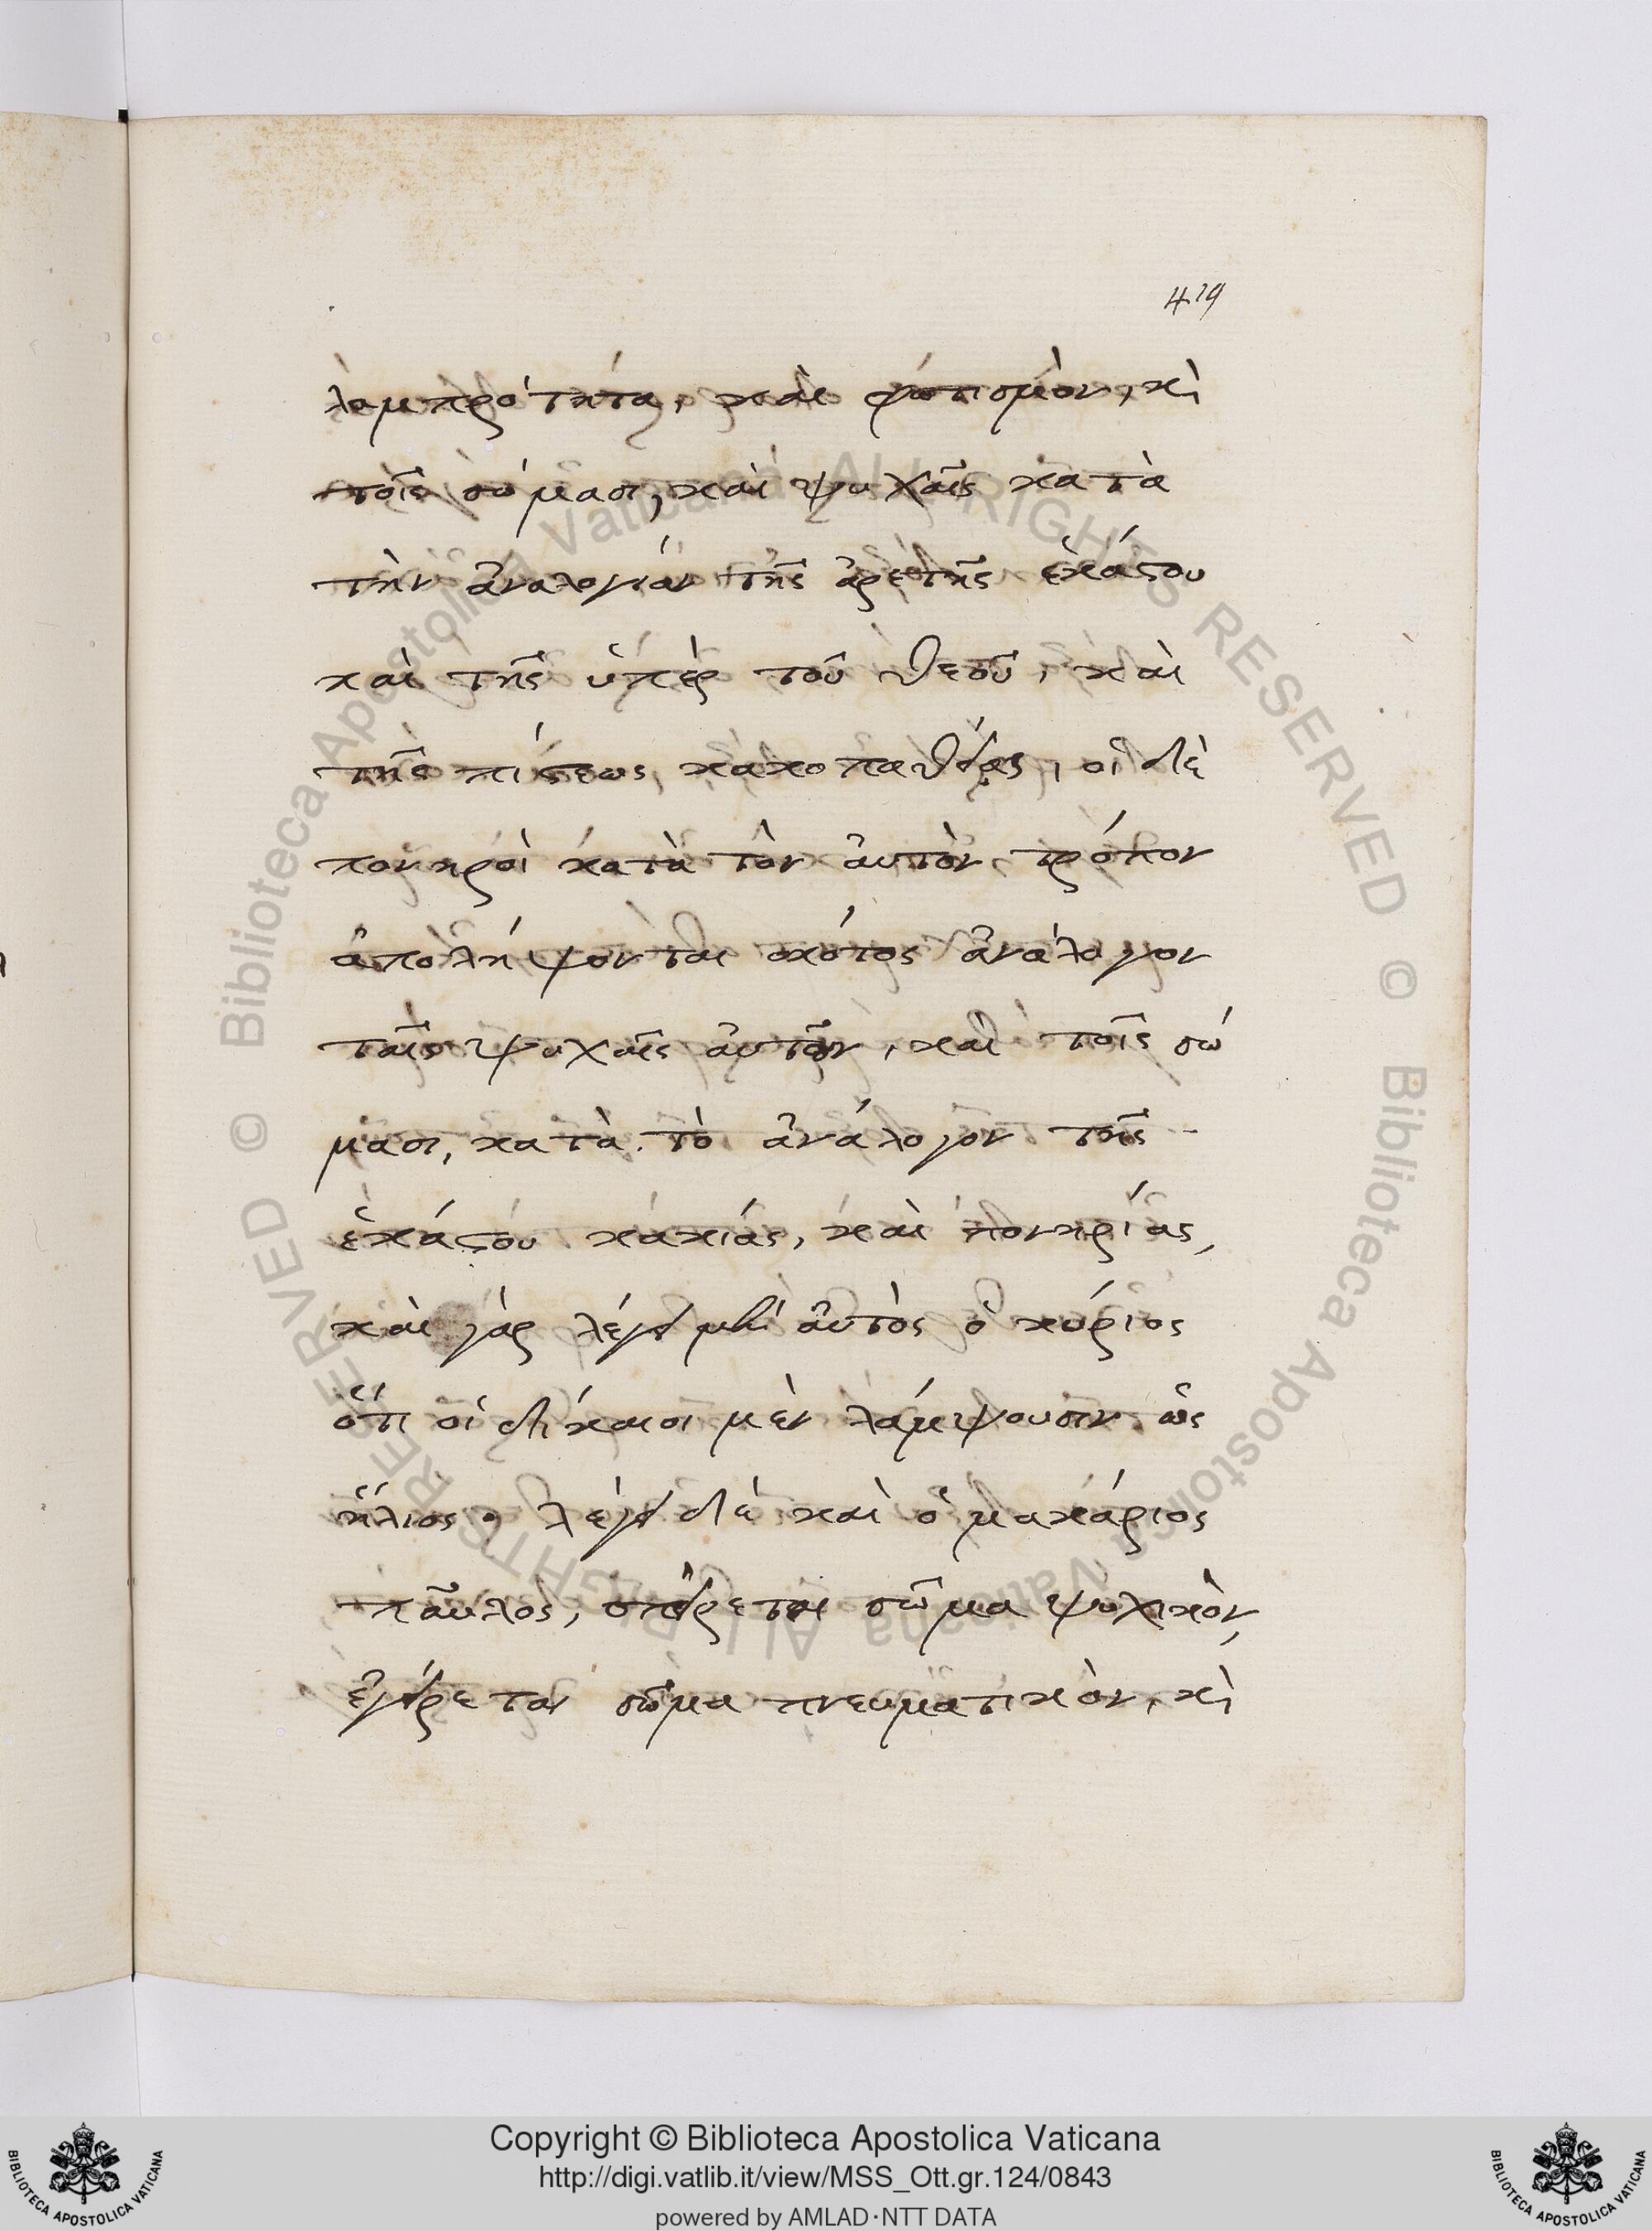 419
λαμπρότητα, καὶ φωτισμὸν, κὶ
τοῖς σώμασι, καὶ ψυχαῖς κατὰ
τὴν ἀναλογίαν τῆς ἀρετῆς ἑκάστου
καὶ τῆς ὑπὲρ τοῦ θεοῦ, καὶ
τῆς πίστεως, κακοπαθείας, οἱ δὲ
πονηροὶ κατὰ τὸν αὐτὸν τρόπον
ἀπολήψονται σκότος ἀνάλογον
ταῖς ψυχαῖς αὐτῶν, καὶ τοῖς σώ
μασι, κατὰ τὸ ἀνάλογον τῆς
ἑκάστου κακίας, καὶ πονηρίας,
καὶ γὰρ λέγει μὲν αὐτὸς ὁ κύριος
ὅτι οἱ δίκαιοι μὲν λάμψουσιν ὡς
ἥλιος· λέγει δὲ καὶ ὁ μακάριος
παῦλος, σπείρεται σῶμα ψυχικὸν,
ἐγείρεται σῶμα πνευματικὸν, κὶ
Biblioteca Apostolica Vaticana ALL RIGHTS RESERVED ©
Biblioteca Apostolica Vaticana ALL RIGHTS RESERVED ©
Copyright © Biblioteca Apostolica Vaticana
http://digi.vatlib.it/view/MSS_Ott.gr.124/0843
powered by AMLAD·NTT DATA
BIBLIOTECA APOSTOLICA VATICANA
BIBLIOTECA APOSTOLICA VATICANA